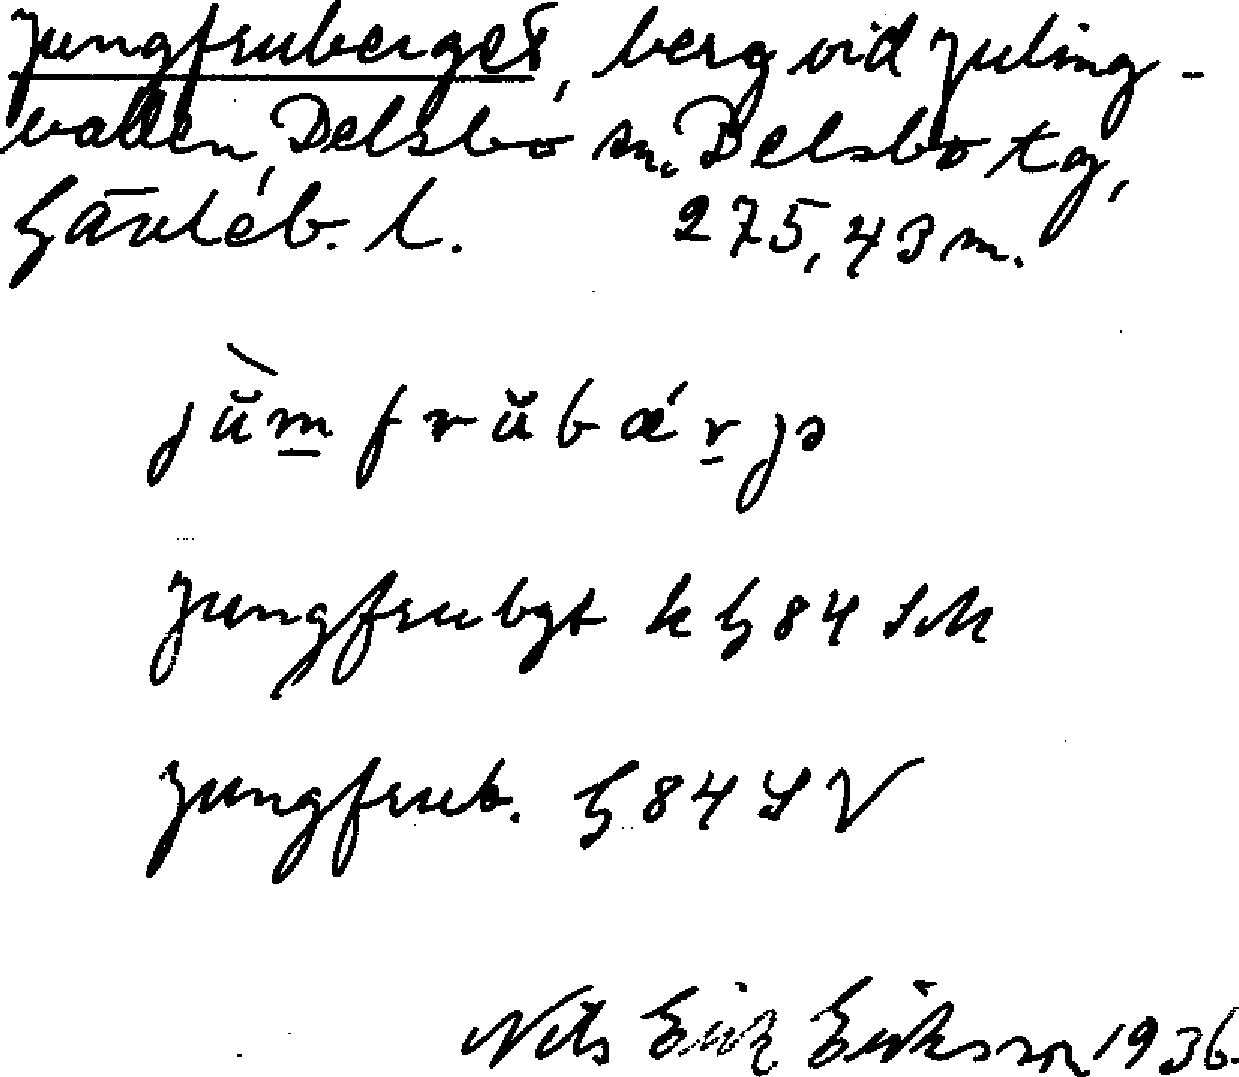 Jungfruberget, berg vid Juling-
vallen, Delsbo sn. Delsbo tg,
Gävleb. l. 275,43 m.
jŭm frŭbǽrjə
Jungfrubgt k G 84 SM
Jungfrub. G 84 SV
Nils Erik Eriksson 1936.